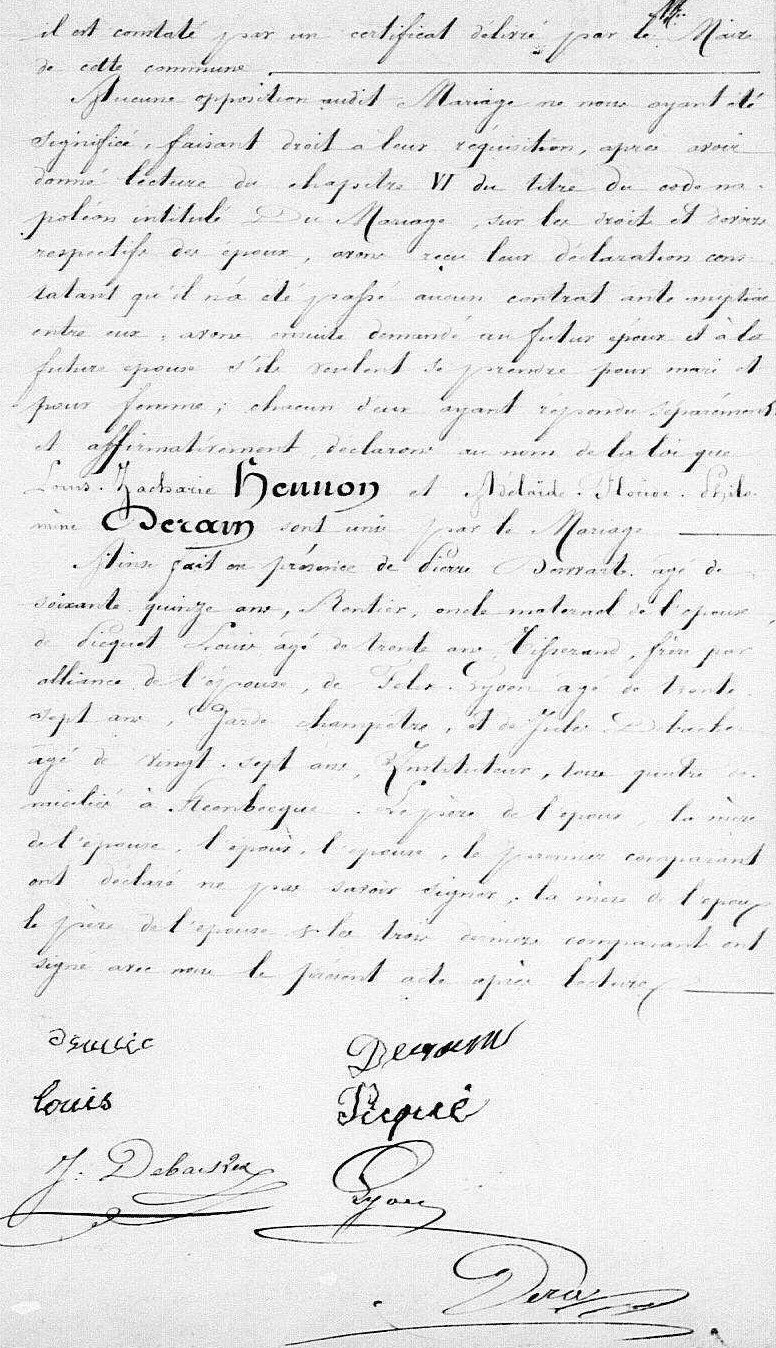 il est constaté par un certificat délivré par le Mr. Maire
de cette commune
Aucune opposition audit Mariage ne nous ayant été
signifiée, faisant droit a leur réquisition, après avoir
donné lecture du chapitre VI du titre du code na-
poléon intitulé Du Mariage, sur les droits et devoirs
respectifs des époux, avons reçu leur déclaration cons-
tatant qu'il n'a été passé aucun contrat ante nuptial
entre eux, avons ensuite demandé au futur époux et à la
future épouse s'ils veulent se prendre pour mari et
pour femme; chacun d'eux ayant répondu séparément
et affirmativement, déclarons au nom de la loi que
Louis Zacharie Hennon et Adélaïde Philo-
mène Derain sont unis par le Mariage
Ainsi fait en présence de Pierre âgé de
soixante quinze ans, Rentier, oncle maternel de l'epouse,
de Picquet Louis âgé de trente ans, Tisserand, frère par
alliance de l'épouse, de Felix Gyon âgé de trente
sept ans, Garde champêtre, et de Jules
âgé de vingt-sept ans, Instituteur, tous quatre do-
miciliés à Steenbecque. Le père de l'époux, la mère
de l'épouse, l'époux, l'épouse, le premier comparant
ont déclaré ne pas savoir signer, la mère de l'époux
le père de l'épouse & les trois derniers comparant ont
signé avec nous le présent acte après lecture
Derain
louis Piequé
J. Debaecker Gyon